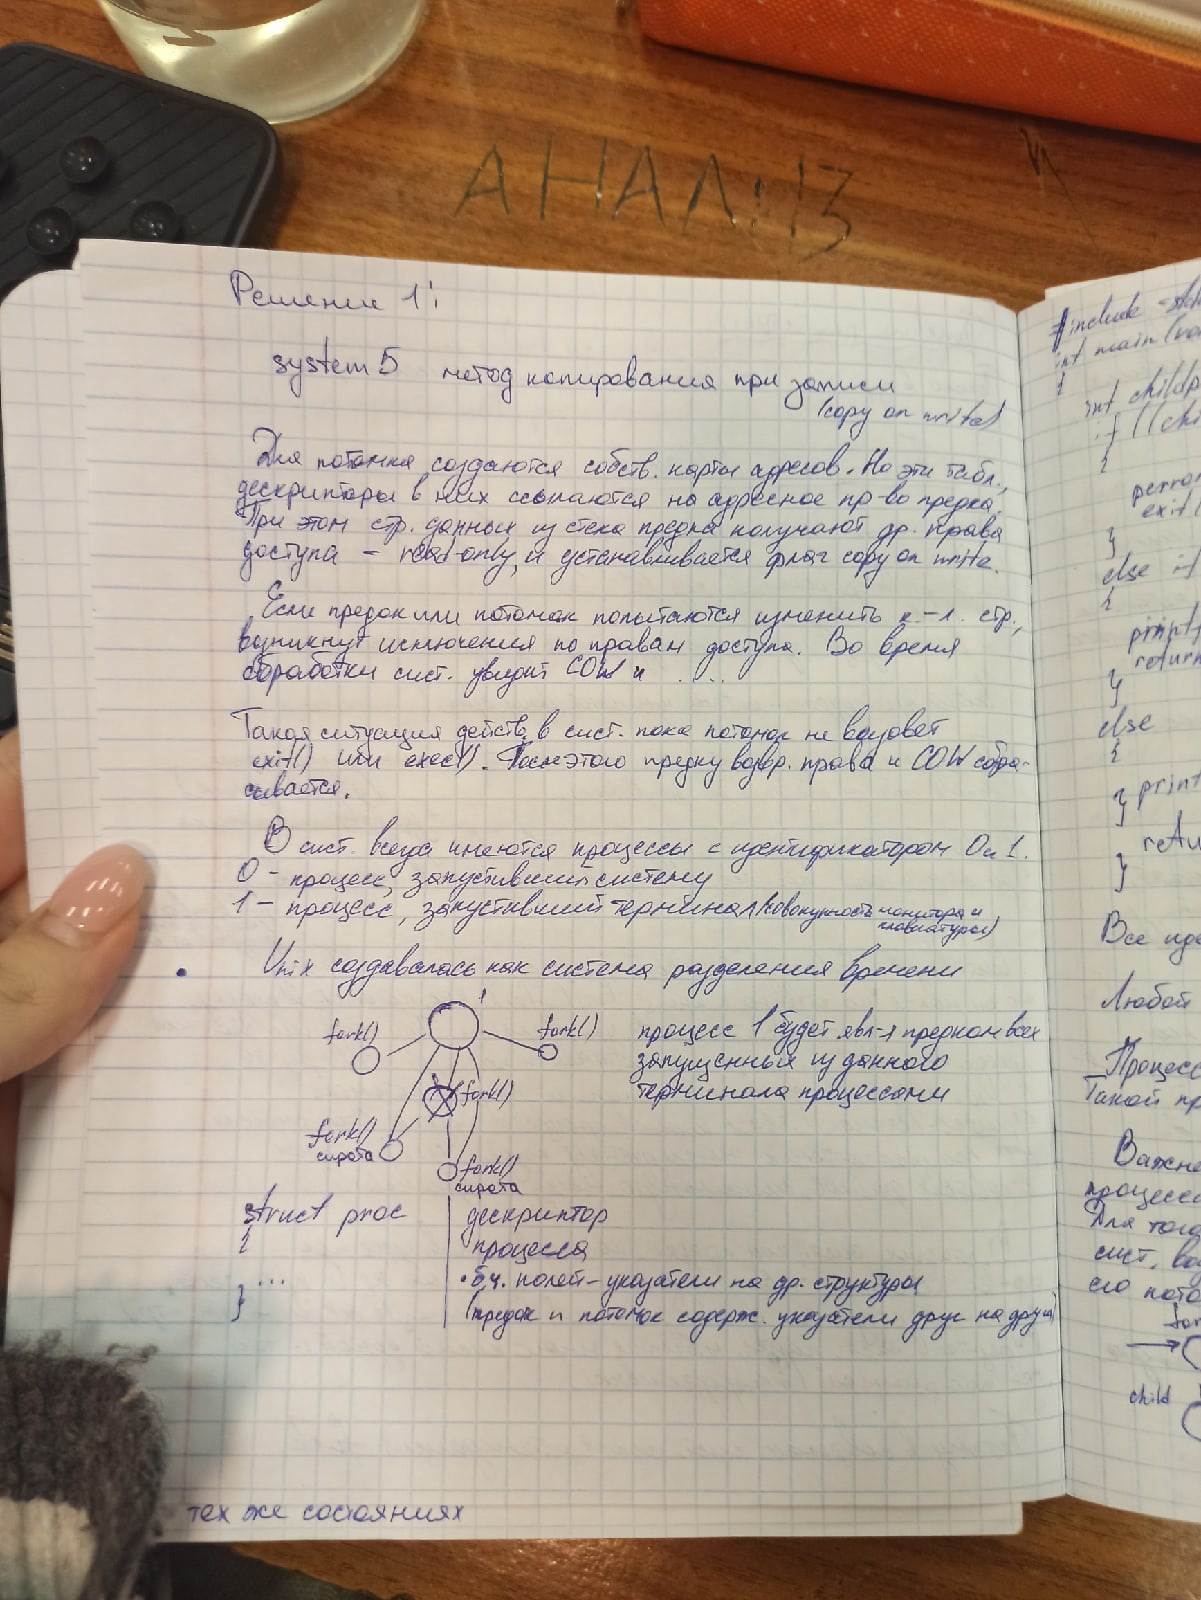 АНАЛ:13
Решение 1:
system 5 метод копирования при записи
(copy on write)
Для потомка создаются собств. карты адресов. Но эти табл.,
дескрипторы в них ссылаются на адресное пр-во предка.
При этом стр. данных из стека предка получают др. права
доступа – read-only, и устанавливается флаг copy on write.
Если предок или потомок попытаются изменить к.-л. стр.,
возникнут исключения по правам доступа. Во время
обработки сист. увидит COW и ....
Такая ситуация действ. в сист. пока потомок не вызовет
exit() или exec(). После этого предку возвр. права и COW сбра-
сывается.
В сист. всегда имеются процессы с идентификатором 0 и 1.
0 – процесс, запустивший систему
1 – процесс, запустивший терминал (совокупность монитора и
клавиатуры)
• Unix создавалась как система разделения времени
1
fork()
fork()
процесс 1 будет явл-я предком всех
запущенных из данного
терминала процессами
fork()
fork()
сирота
fork()
сирота
struct proc
{
...
}
дескриптор
процесса
• б.ч. полей – указатели на др. структуры
(предок и потомок содерж. указатели друг на друга)
тех же состояниях
#include <st
int main(vo
{
int childp
if ((chi
{
perror
exit(
}
else if
{
printf
return
}
else
{
print
}
retu
}
Все
Любой
Процесс
Такой пр
Важне
процесс
Для того
сист.
его пото
for
child